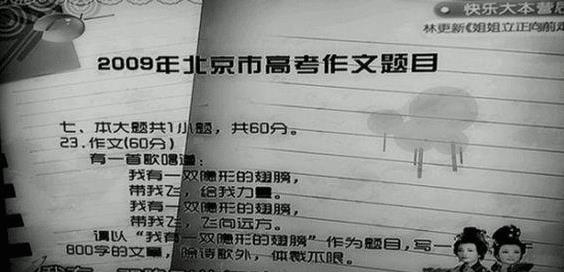 快乐大本营
林更新《姐姐立正向前走
2009年北京市高考作文题目
七、本大题共1小题，共60分。
23.作文(60分)
有一首歌唱道：
我有一双隐形的翅膀，
带我飞，给我力量。
我有一双隐形的翅膀，
带我飞，飞向远方。
请以“我有一双隐形的翅膀”作为题目，写一
800字的文章，除诗歌外，体裁不限。